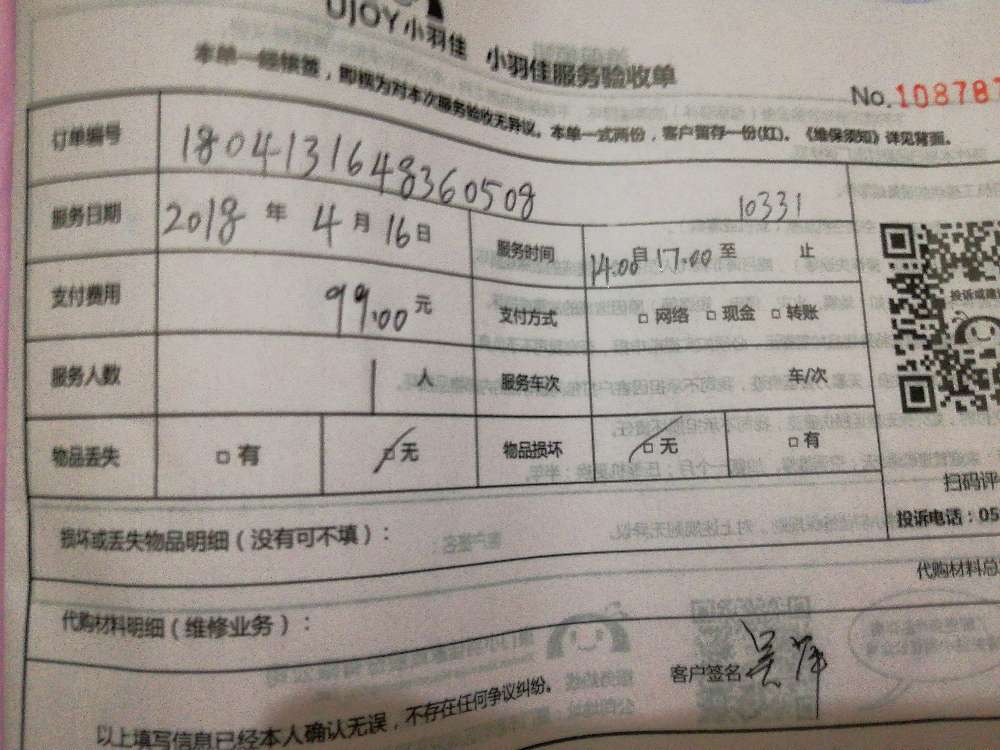 UJOY小羽佳 小羽佳服务验收单
本单一经核签，即视为对本次服务验收无异议。本单一式两份，客户留存一份(红)。《维保须知》详见背面。
No.108787
订单编号 1804131648360508 10331
服务日期 2018 年 4 月 16 日 服务时间 14.00 自 17.00 至 止
支付费用 99.00 元 支付方式 □ 网络 □ 现金 □ 转账
服务人数 1 人 服务车次 车/次
物品丢失 □ 有 □ 无 物品损坏 □ 无 □ 有
投诉或建
扫码评
投诉电话：05
损坏或丢失物品明细（没有可不填）：
代购材料总
代购材料明细（维修业务）：
客户签名 吴
以上填写信息已经本人确认无误，不存在任何争议纠纷。